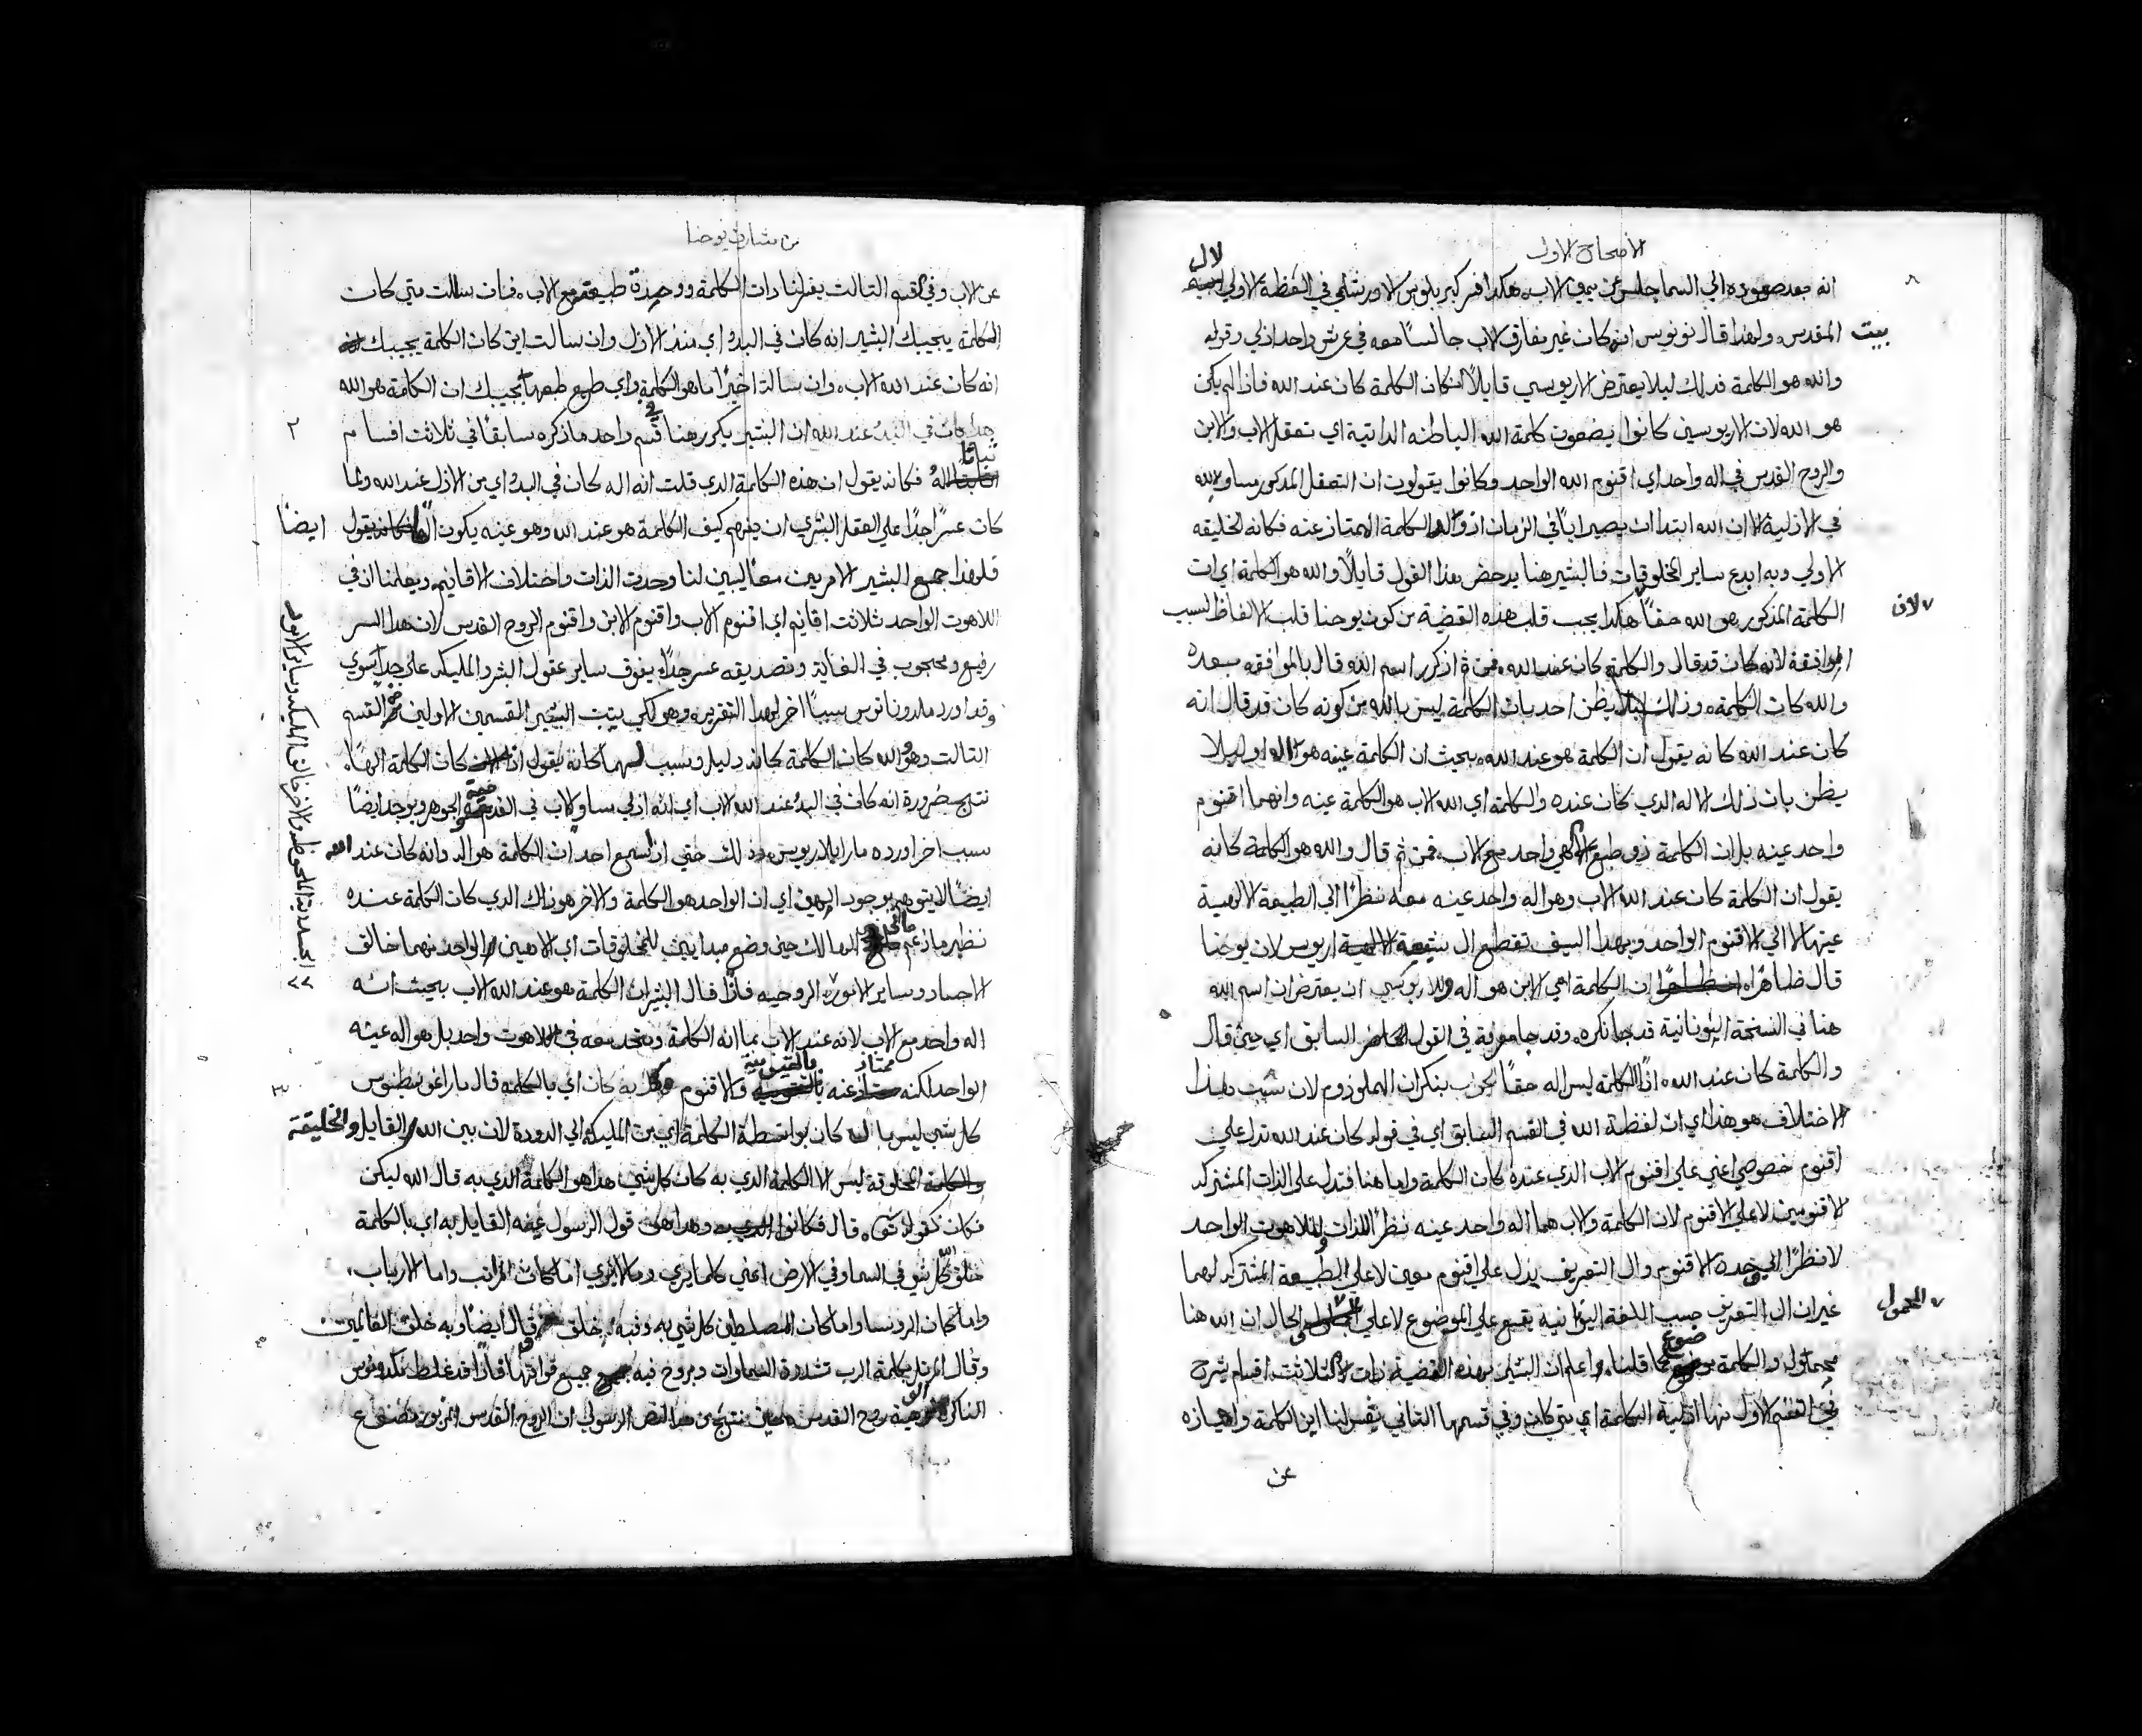 الاصحاح الاول
٨
انه بعد صعوده الي السما جلس عن يمين الاب. هكدا فسر كيريلوس الاورشليمي في العظة الاولي لال
بيت المقدس. ولهذا قال نونوس انه كان غير مفارق الاب جالسًا معه في عرش واحد ازلي وقوله
والله هو الكلمة فدلك ليلا يعترض الاريوسي قايلًا ان كان الكلمة كان عند الله فاذًا لم يكن
هو الله لان الاريوسيين كانوا يضعون كلمة الله الباطنه الداتية اي تعقل الاب والابن
والروح القدس في اله واحد اي اقنوم الله الواحد وكانوا يقولون ان التعقل المدكور مساو لله
في الازلية الا ان الله ابتدا ان يصير ابًا في الزمان اذ ولد الكلمة الممتاز عنه فكانه الخليقه
الاولي وبه ابدع ساير المخلوقات فالبشير هنا يدحض هدا القول قايلًا والله هو الكلمة اي ان
الكلمة المذكور هو الله حقًا هكدا يجب قلب هذه القضية من كون يوحنا قلب الالفاظ لسبب
لان
الموافقة لانه كان قد قال والكلمة كان عند الله. فمن ثم اذ كرر اسم الله قال بالموافقه بعده
والله كان الكلمة. وذلك ليلا يظن احد بان الكلمة ليس بالله من كونه كان قد قال انه
كان عند الله كانه يقول ان الكلمة هو عند الله. بحيث ان الكلمة عينه هو اله او ليلا
يظن بان ذلك الاله الدي كان عنده والكلمة اي الله الاب هو الكلمة عينه وانهما اقنوم
واحد عينه بل ان الكلمة ذو طبع الاهي واحد مع الاب. فمن ثم قال والله هو الكلمة كانه
يقول ان الكلمة كان عند الله الاب وهو اله واحد عينه معه نظرًا الي الطبيعة الالهية
عينها لا الي الاقنوم الواحد وبهدا السيف تقطع ال شيعة اريوس لان يوحنا
قال ظاهرًا ان الكلمة اعني الابن هو اله وللاريوسي ان يعترض ان اسم الله
هنا في النسخة اليونانية قد جا نكره. وقد جا معرفة في القول السابق اي حيث قال
والكلمة كان عند الله. اذًا الكلمة ليس اله حقًا الجواب بنكران الملزوم لان سبب هدا
الاختلاف هو هذا اي ان لفظة الله في القسم السابق اي في قوله كان عند الله تدل علي
اقنوم خصوصي اعني علي اقنوم الاب الدي عنده كان الكلمة واما هنا فتدل علي الذات المشتركه
لاقنومين لا علي الاقنوم لان الكلمة والاب هما اله واحد عينه نظرًا للذات وللاهوت الواحد
لا نظرًا الي وحدة الاقنوم وال التعريف يدل علي اقنوم معين لا علي الطبيعة المشتركه لهما
غير ان ال التعريف حسب اللغة اليونانية يقع علي الموضوع لا علي المحمول والحال ان الله هنا
محمول والكلمة موضوع كما قلنا. واعلم ان البشير بهذه القضية ذات الثلاثت اقسام يشرح
في القسم الاول منها ازلية الكلمة اي متي كان وفي قسمها التاني يفسر لنا اين الكلمة وامتيازه
عن
من بشارة يوحنا
عن الاب وفي القسم التالت يفسر لنا دات الكلمة ووحدة طبيعته مع الاب. فان سالت متي كان
الكلمة يجيبك البشير انه كان في البدو اي منذ الازل وان سالت اين كان الكلمة يجيبك
انه كان عند الله الاب. وان سالت اخيرًا ما هو الكلمة واي طبع طبعه يجيبك ان الكلمة هو الله
٢ هدا كان في البدء عند الله ان البشير يكرر هنا في قسم واحد ما ذكره سابقًا في ثلاثت اقسام
فكانه يقول ان هذه الكلمة الدي قلت انه اله كان في البدو اي من الازل عند الله ولما
كان عسرًا جدًا علي العقل البشري ان يفهم كيف الكلمة هو عند الله وهو عينه يكون ايضًا
فلهذا جمع البشير الامرين معًا ليبين لنا وحدت الذات واختلاف الاقانيم ويعلمنا ان في
اللاهوت الواحد ثلاثت اقانيم اي اقنوم الاب واقنوم الابن واقنوم الروح القدس لان هدا السر
رفيع ومحجوب في الغاية وتصديقه عسر جدًا يفوق ساير عقول البشر والمليكه
وقد اورد ملدوناتوس سببًا اخر لهدا التقرير. وهو لكي يثبت البشير القسمين الاولين من القسم
التالت وهو والله كان الكلمة كانه دليل وسبب لهما كانه يقول اذا كان الكلمة الهًا.
نتج ضرورة انه كان في البدء عند الله الاب اي انه ازلي مساو للاب في القدمية الجوهر ويوجد ايضًا
سبب اخر اورده مار ايلاريوس. وذلك حتي اذا سمع احد ان الكلمة هو اله وانه كان عند الله
ايضًا لا يتوهم بوجود الهين اي ان الواحد هو الكلمة والاخر هو ذاك الدي كان الكلمة عنده
نظير ما زعم ماني الهالك حين وضع مبدايين للمخلوقات اي الاهين الواحد منهما خالق
الاجساد وساير الامور الروحيه فاذًا قال البشير ان الكلمة هو عند الله الاب بحيث انه
اله واحد مع الاب لانه عند الاب بما انه الكلمة ومتحد معه في اللاهوت واحد بل هو اله عينه
الواحد لكنه ممتاز عنه بالاقنومية والاقنوم
٣ كل به كان اي بالكلمه قال ماراغوسطينوس
كل شي ليس باله كان بواسطة الكلمة اي من المليكه الي الدودة لان بين الله القايل والخليقة
المخلوقة ليس الا الكلمة الدي به كان كل شي هدا هو الكلمة الدي به قال الله ليكن
فكان كقوله قال فكانوا وهدا هو قول الرسول عينه القايل به اي بالكلمة
خلق الله كل شي في السما وفي الارض اعني كلما يري وما لا يري اما كان المراتب واما الارباب.
واما كان الرونسا واما كان المتسلطين كل شي به وفيه خلق قال ايضًا وبه خلق العالمين
وقال المرتل بكلمة الرب تشددة السماوات وبروح فيه جميع قواتها فاذًا قد غلط مكدونيوس
الناكر الوهية روح القدس حين نتج من هدا النص الرسولي ان الروح القدس المزبور مصنوع